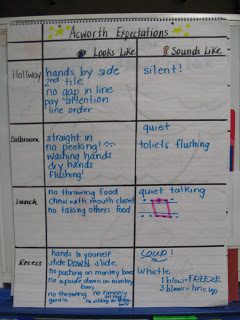 Acworth Expectations
Looks Like
Sounds Like
Hallway
hands by side
2nd tile
no gap in line
pay attention
line order
silent!
Bathroom
straight in
no peeking!
washing hands
dry hands
flushing!
quiet
toliets flushing
Lunch
no throwing food
chew with mouth closed
no taking others food
quiet talking
Recess
hands to yourself
slide DOWN slide
no pushing on monkey bars
no upside down on monkey
bars
no throwing
no sitting on
LOUD!
Whistle
1 blow = FREEZE
3 blows = line up